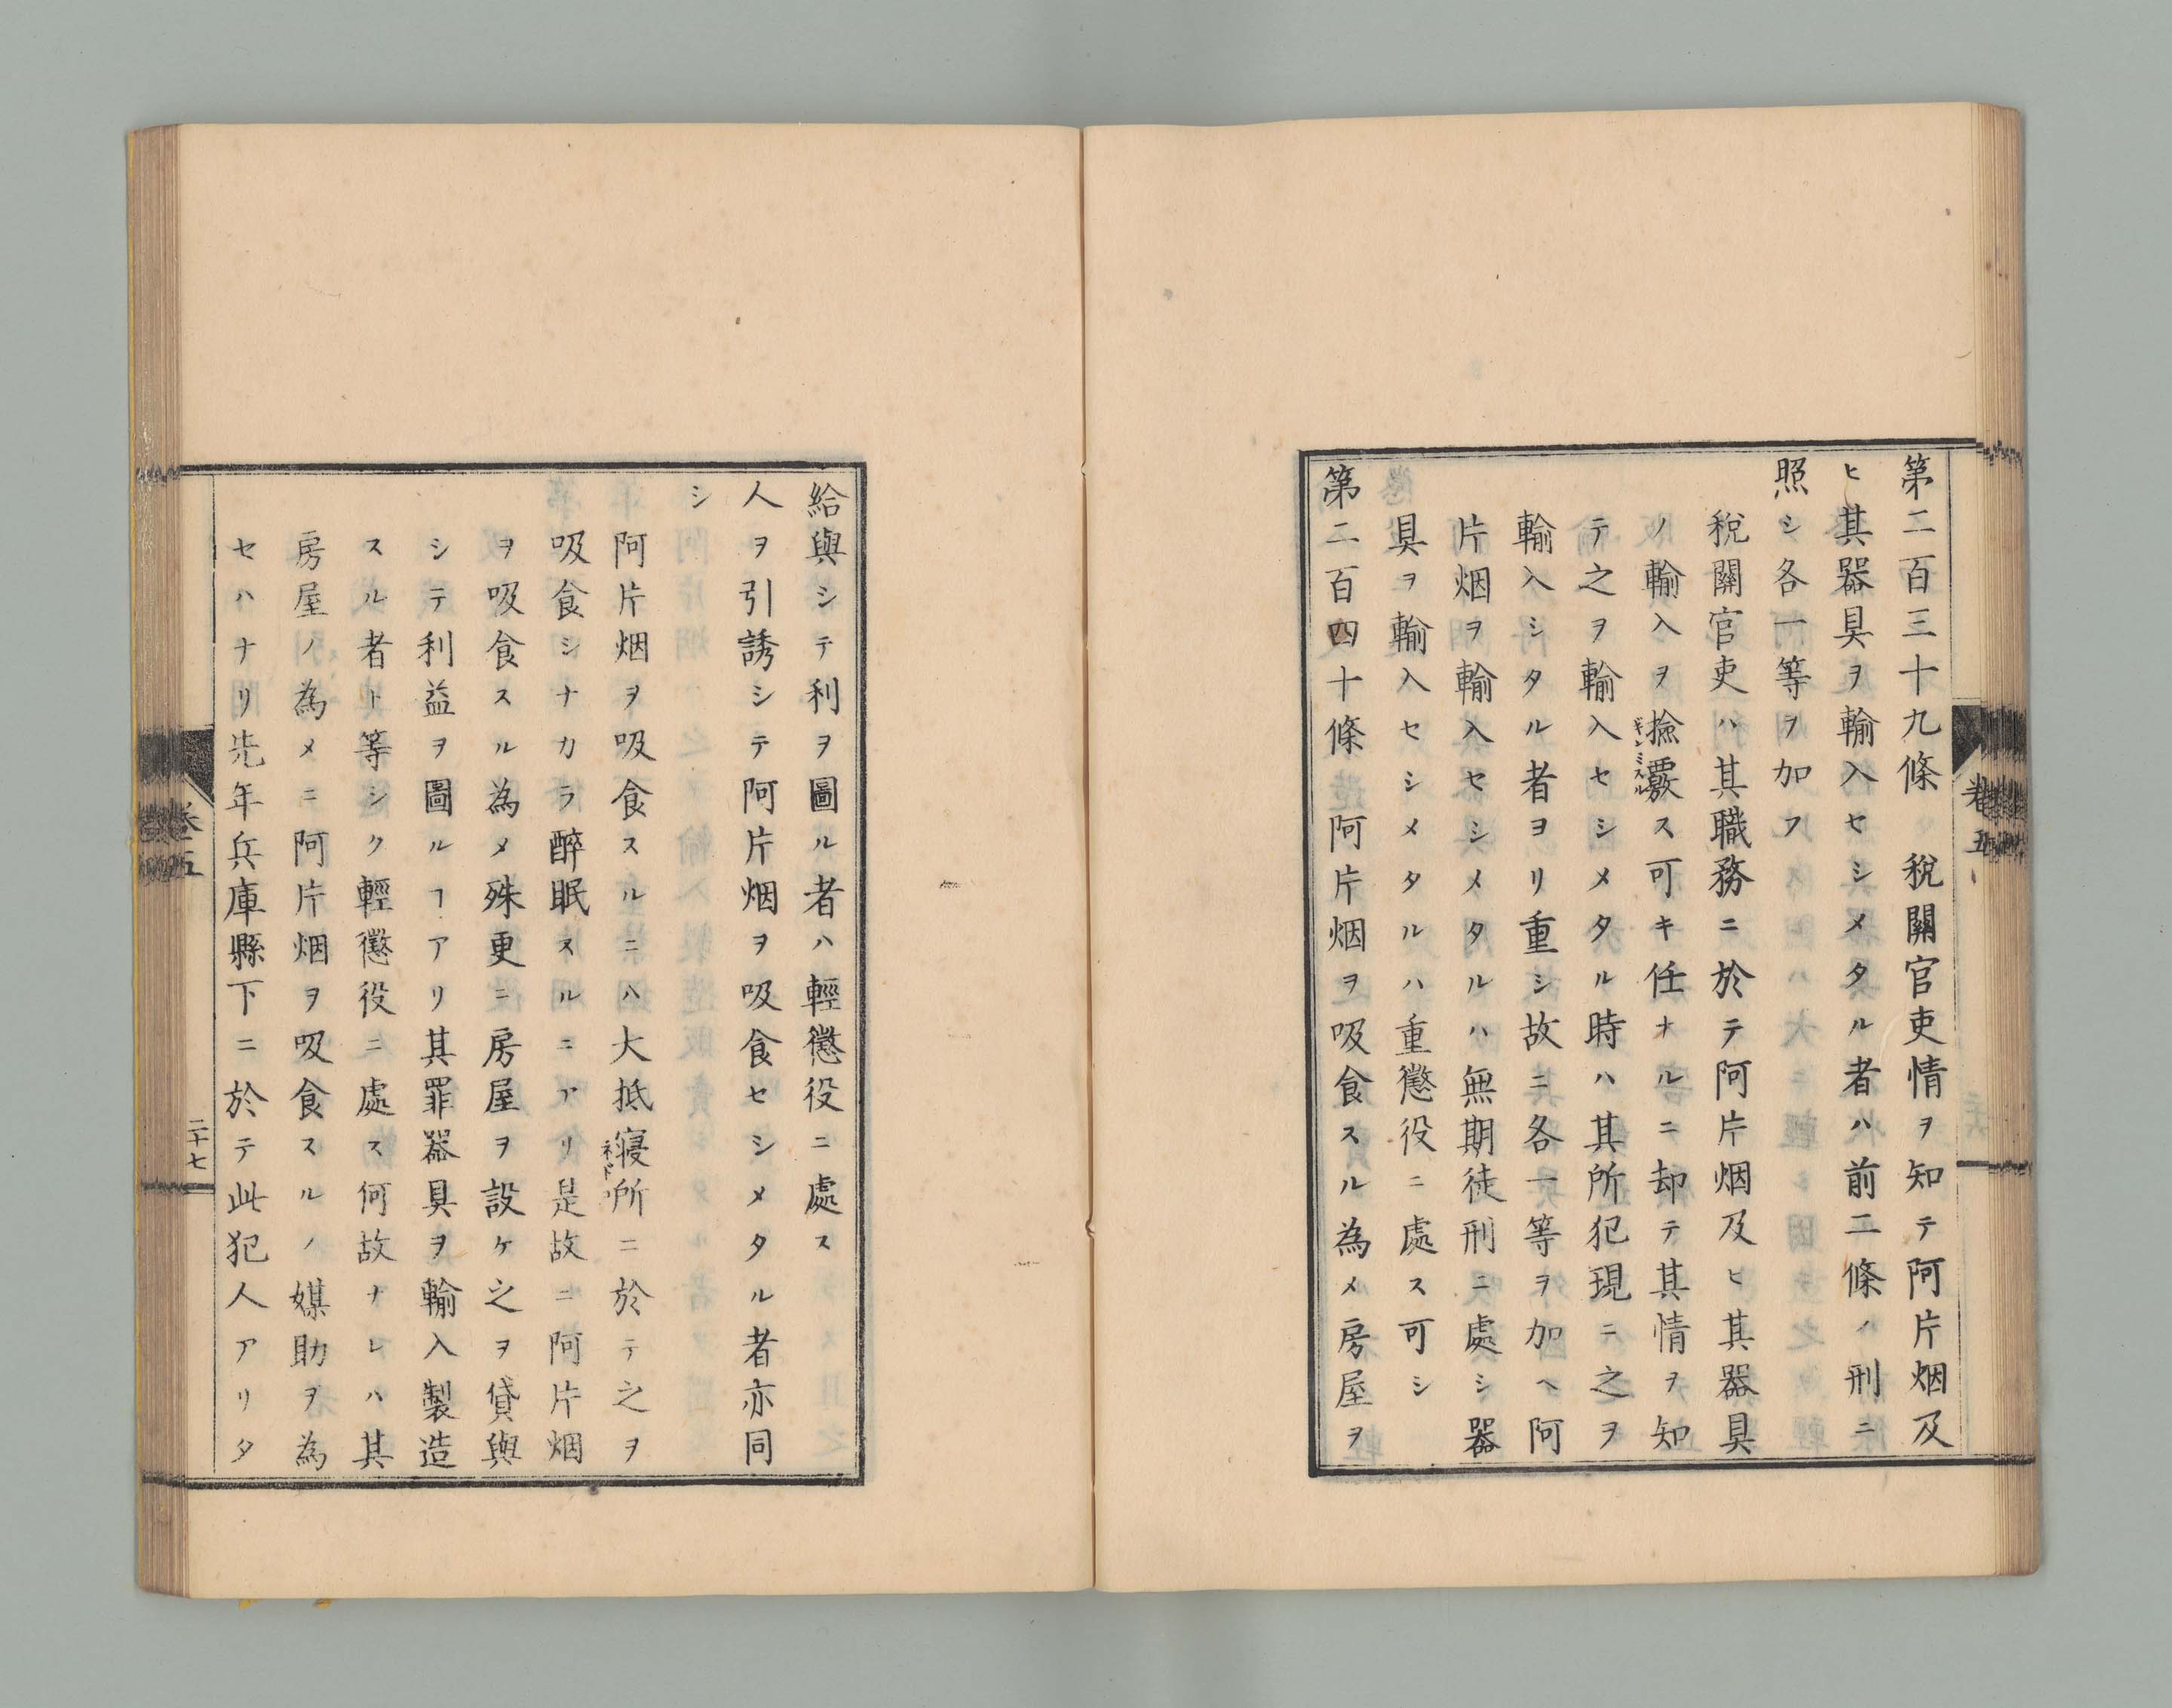 第二百三十九條　稅關官吏情ヲ知テ阿片烟及
ヒ其器具ヲ輸入セシメタル者ハ前二條ノ刑ニ
照シ各一等ヲ加フ
稅關官吏ハ其職務ニ於テ阿片烟及ヒ其器具
ノ輸入ヲ撿覈ス可キ任ナルニ却テ其情ヲ知
ギンミスル
テ之ヲ輸入セシメタル時ハ其所犯現ニ之ヲ
輸入シタル者ヨリ重シ故ニ各一等ヲ加ヘ阿
片烟ヲ輸入セシメタルハ無期徒刑ニ處シ器
具ヲ輸入セシメタルハ重懲役ニ處ス可シ
第二百四十條　阿片烟ヲ吸食スル為メ房屋ヲ
卷五
給與シテ利ヲ圖ル者ハ輕懲役ニ處ス
人ヲ引誘シテ阿片烟ヲ吸食セシメタル者亦同
シ
阿片烟ヲ吸食スルニハ大抵寢所ニ於テ之ヲ
ネドコ
吸食シナカラ醉眠スルニアリ是故ニ阿片烟
ヲ吸食スル為メ殊更ニ房屋ヲ設ケ之ヲ貸與
シテ利益ヲ圖ルヿアリ其罪器具ヲ輸入製造
スル者ト等シク輕懲役ニ處ス何故ナレハ其
房屋ノ為メニ阿片烟ヲ吸食スルノ媒助ヲ為
セハナリ先年兵庫縣下ニ於テ此犯人アリタ
卷五
二十七